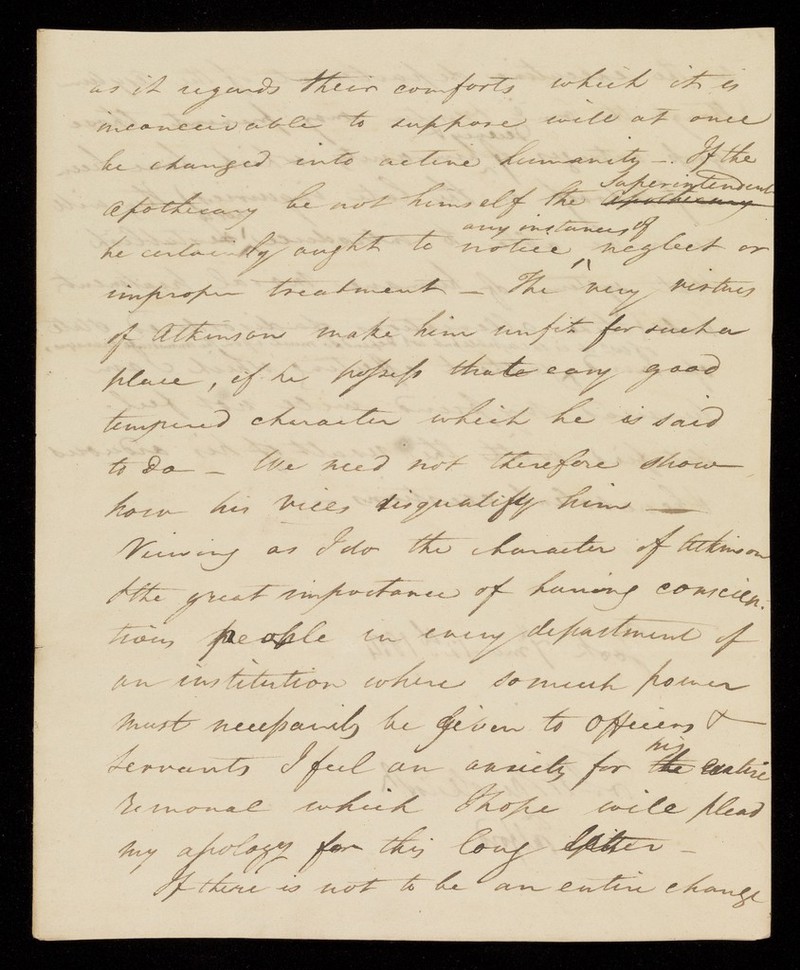 as it regards their comforts which it is
inconceivable to suppose will at once
be changed into active humanity -. If the
Superintendent
apothecary be not himself the apothecary
any instances of
he certainly ought to notice ^ neglect or
improper treatment - The very virtues
of Atkinson make him unfit for such a
place, if he possess that easy good
tempered character which he is said
to do - We need not therefore show
how his vices disqualify him -
Viewing as I do the character of Atkinson
& the great importance of having conscien-
tious people in every department of
an institution where so much power
must necessarily be given to Officers &
his
Servants I feel an anxiety for the entire
removal which I hope will plead
my apology for this long letter -
If there is not to be an entire change